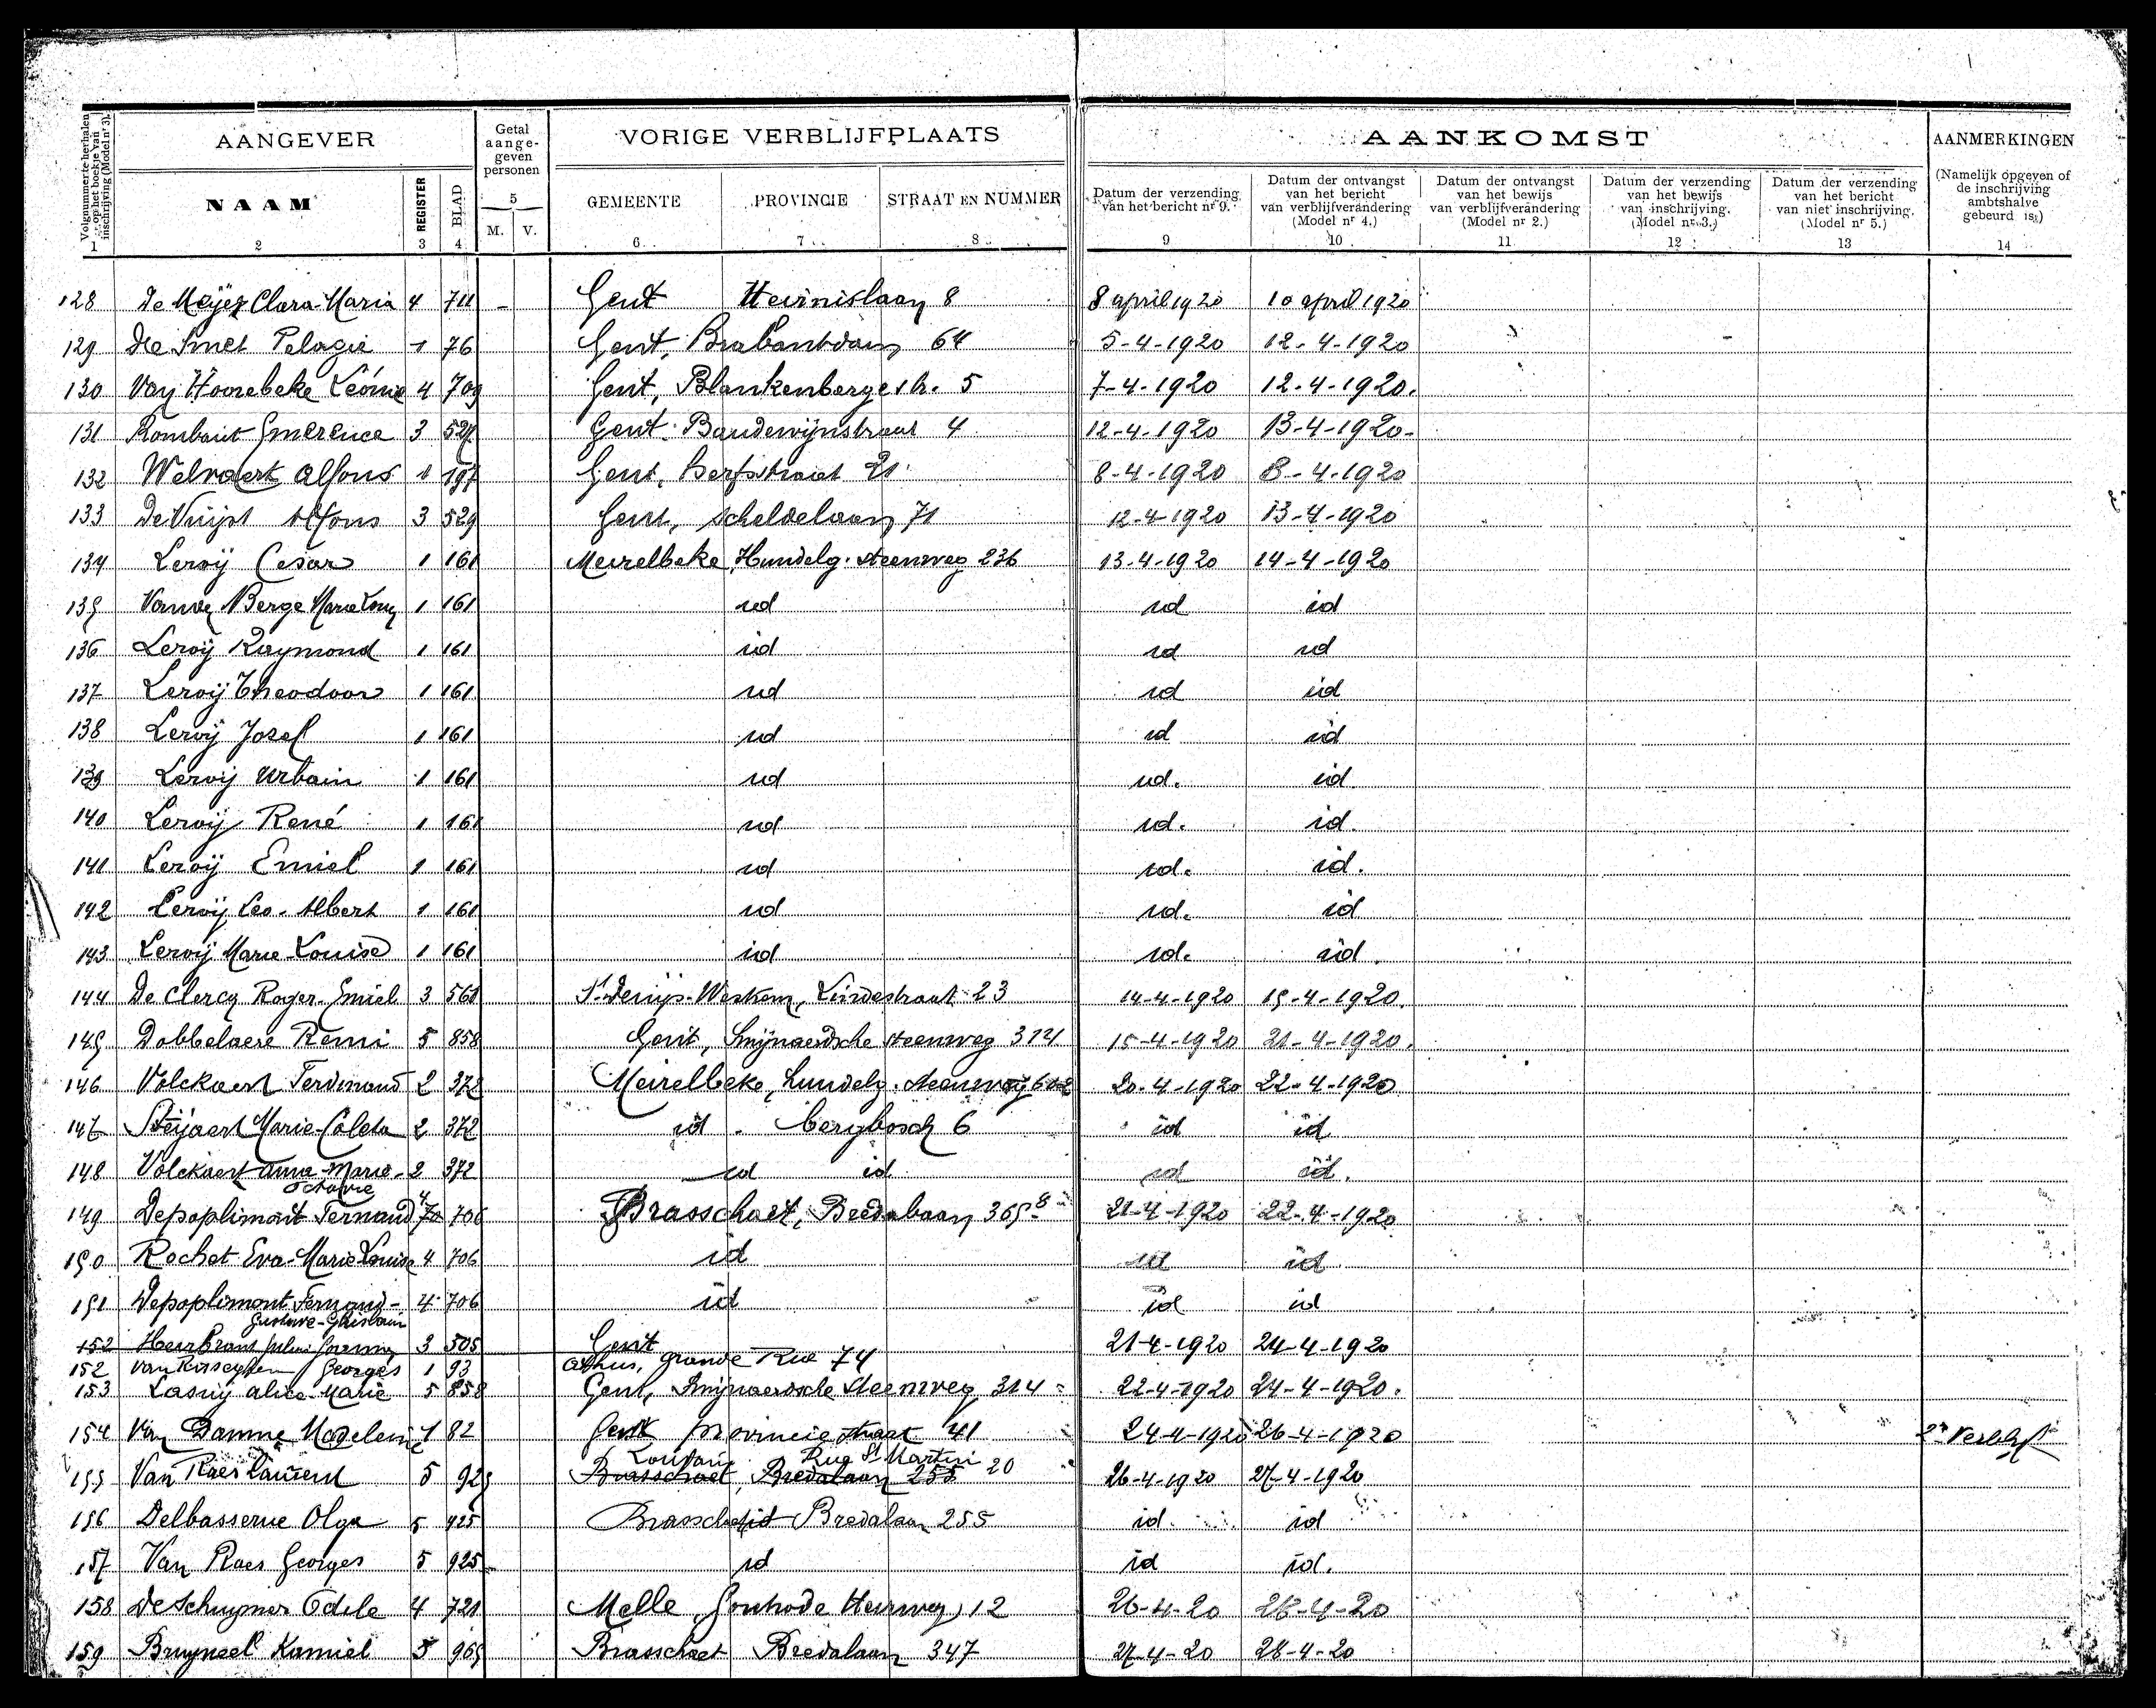 AANGEVER Getal aange-geven personen VORIGE VERBLIJFPLAATS AANKOMST AANMERKINGEN
Volgnummer te herhalen op het boekje van inschrijving (Model nr 3). NAAM REGISTER BLAD 5 M. V. GEMEENTE PROVINCIE STRAAT EN NUMMER Datum der verzending van het bericht nr 9. Datum der ontvangst van het bericht van verblijfverandering (Model nr 4.) Datum der ontvangst van het bewijs van verblijfverandering (Model nr 2.) Datum der verzending van het bewijs van inschrijving. (Model nr 3.) Datum der verzending van het bericht van niet inschrijving. (Model nr 5.) (Namelijk opgeven of de inschrijving ambtshalve gebeurd is.)
1 2 3 4 6 7 8 9 10 11 12 13 14
128 De Meÿer Clara-Maria 4 711 - Gent Heirnislaan 8 8 april 1920 10 april 1920
129 De Smet Pelagie 1 76 Gent, Brabantdam 64 5-4-1920 12-4-1920
130 Van Hoorebeke Léonie 4 709 Gent, Blankenbergestr. 5 7-4-1920 12-4-1920.
131 Rombaut Emerence 3 527 Gent. Boudewijnstraat 4 12-4-1920 13-4-1920-
132 Welvaert Alfons 1 197 Gent, 21 8-4-1920 8-4-1920
133 De Vuijst Alfons 3 529 Gent, Scheldelaan 71 12-4-1920 13-4-1920
134 Leroÿ Cesar 1 161 Meirelbeke Hundelg. steenweg 236 13-4-1920 14-4-1920
135 Berge Marie 1 161 id id id
136 Leroÿ Raymond 1 161 id id id
137 Leroÿ Theodoor 1 161 id id id
138 Leroÿ Josef 1 161 id id id
139 Leroÿ Urbain 1 161 id id. id.
140 Leroÿ René 1 161 id id. id.
141 Leroÿ Emiel 1 161 id id. id.
142 Leroÿ Leo-Albert 1 161 id id. id
143 Leroÿ Marie-Louise 1 161 id id. id.
144 De Clercq Roger-Emiel 3 561 St Denijs-Westrem, Lindestraat 23 14-4-1920 15-4-1920.
145 Dobbelaere Remi 5 858 Gent, Snijnaerdsche steenweg 314 15-4-1920 21-4-1920.
146 Volckaert Ferdinand 2 372 Meirelbeke, Hundelg. steenweg 20-4-1920 22-4-1920
147 Steÿaert Marie-Coleta 2 372 id. Bergbosch 6 id id
148 Volckaert Anna-Marie- 2 372 id id id id.
Octavie
149 Depoplimont Fernand 4 706 Brasschaet, Bredabaan 365 21-4-1920 22-4-1920
150 Rochet Eva-Marie Louise 4 706 id id id.
151 Depoplimont Fernand- 4 706 id id id
Gustave-Ghislain
152 Heerbrant 3 505 Gent 21-4-1920 24-4-1920
152 Georges 1 93 Athus, Grande Rue 74
153 Lasuij Alice-Marie 5 858 Gent, Snijnaerdsche Steenweg 314 22-4-1920 24-4-1920.
154 Van Damme 1 82 Gent Provinciestraat 41 24-4-1920 26-4-1920 2e Verblijf
Rue St Martin
155 Van Raes Laurent 5 925 Brasschaet, Bredalaan 255 20 26-4-1920 27-4-1920
156 Delbasserue Olga 5 925 Brasschaet Bredalaan 255 id. id
157 Van Raes Georges 5 925 id id id.
158 De Schuymer Odile 4 721 Melle Gontrode Heirweg 12 26-4-20 26-4-20
159 Bruyneel Kamiel 5 965 Brasschaet Bredalaan 347 27-4-20 28-4-20